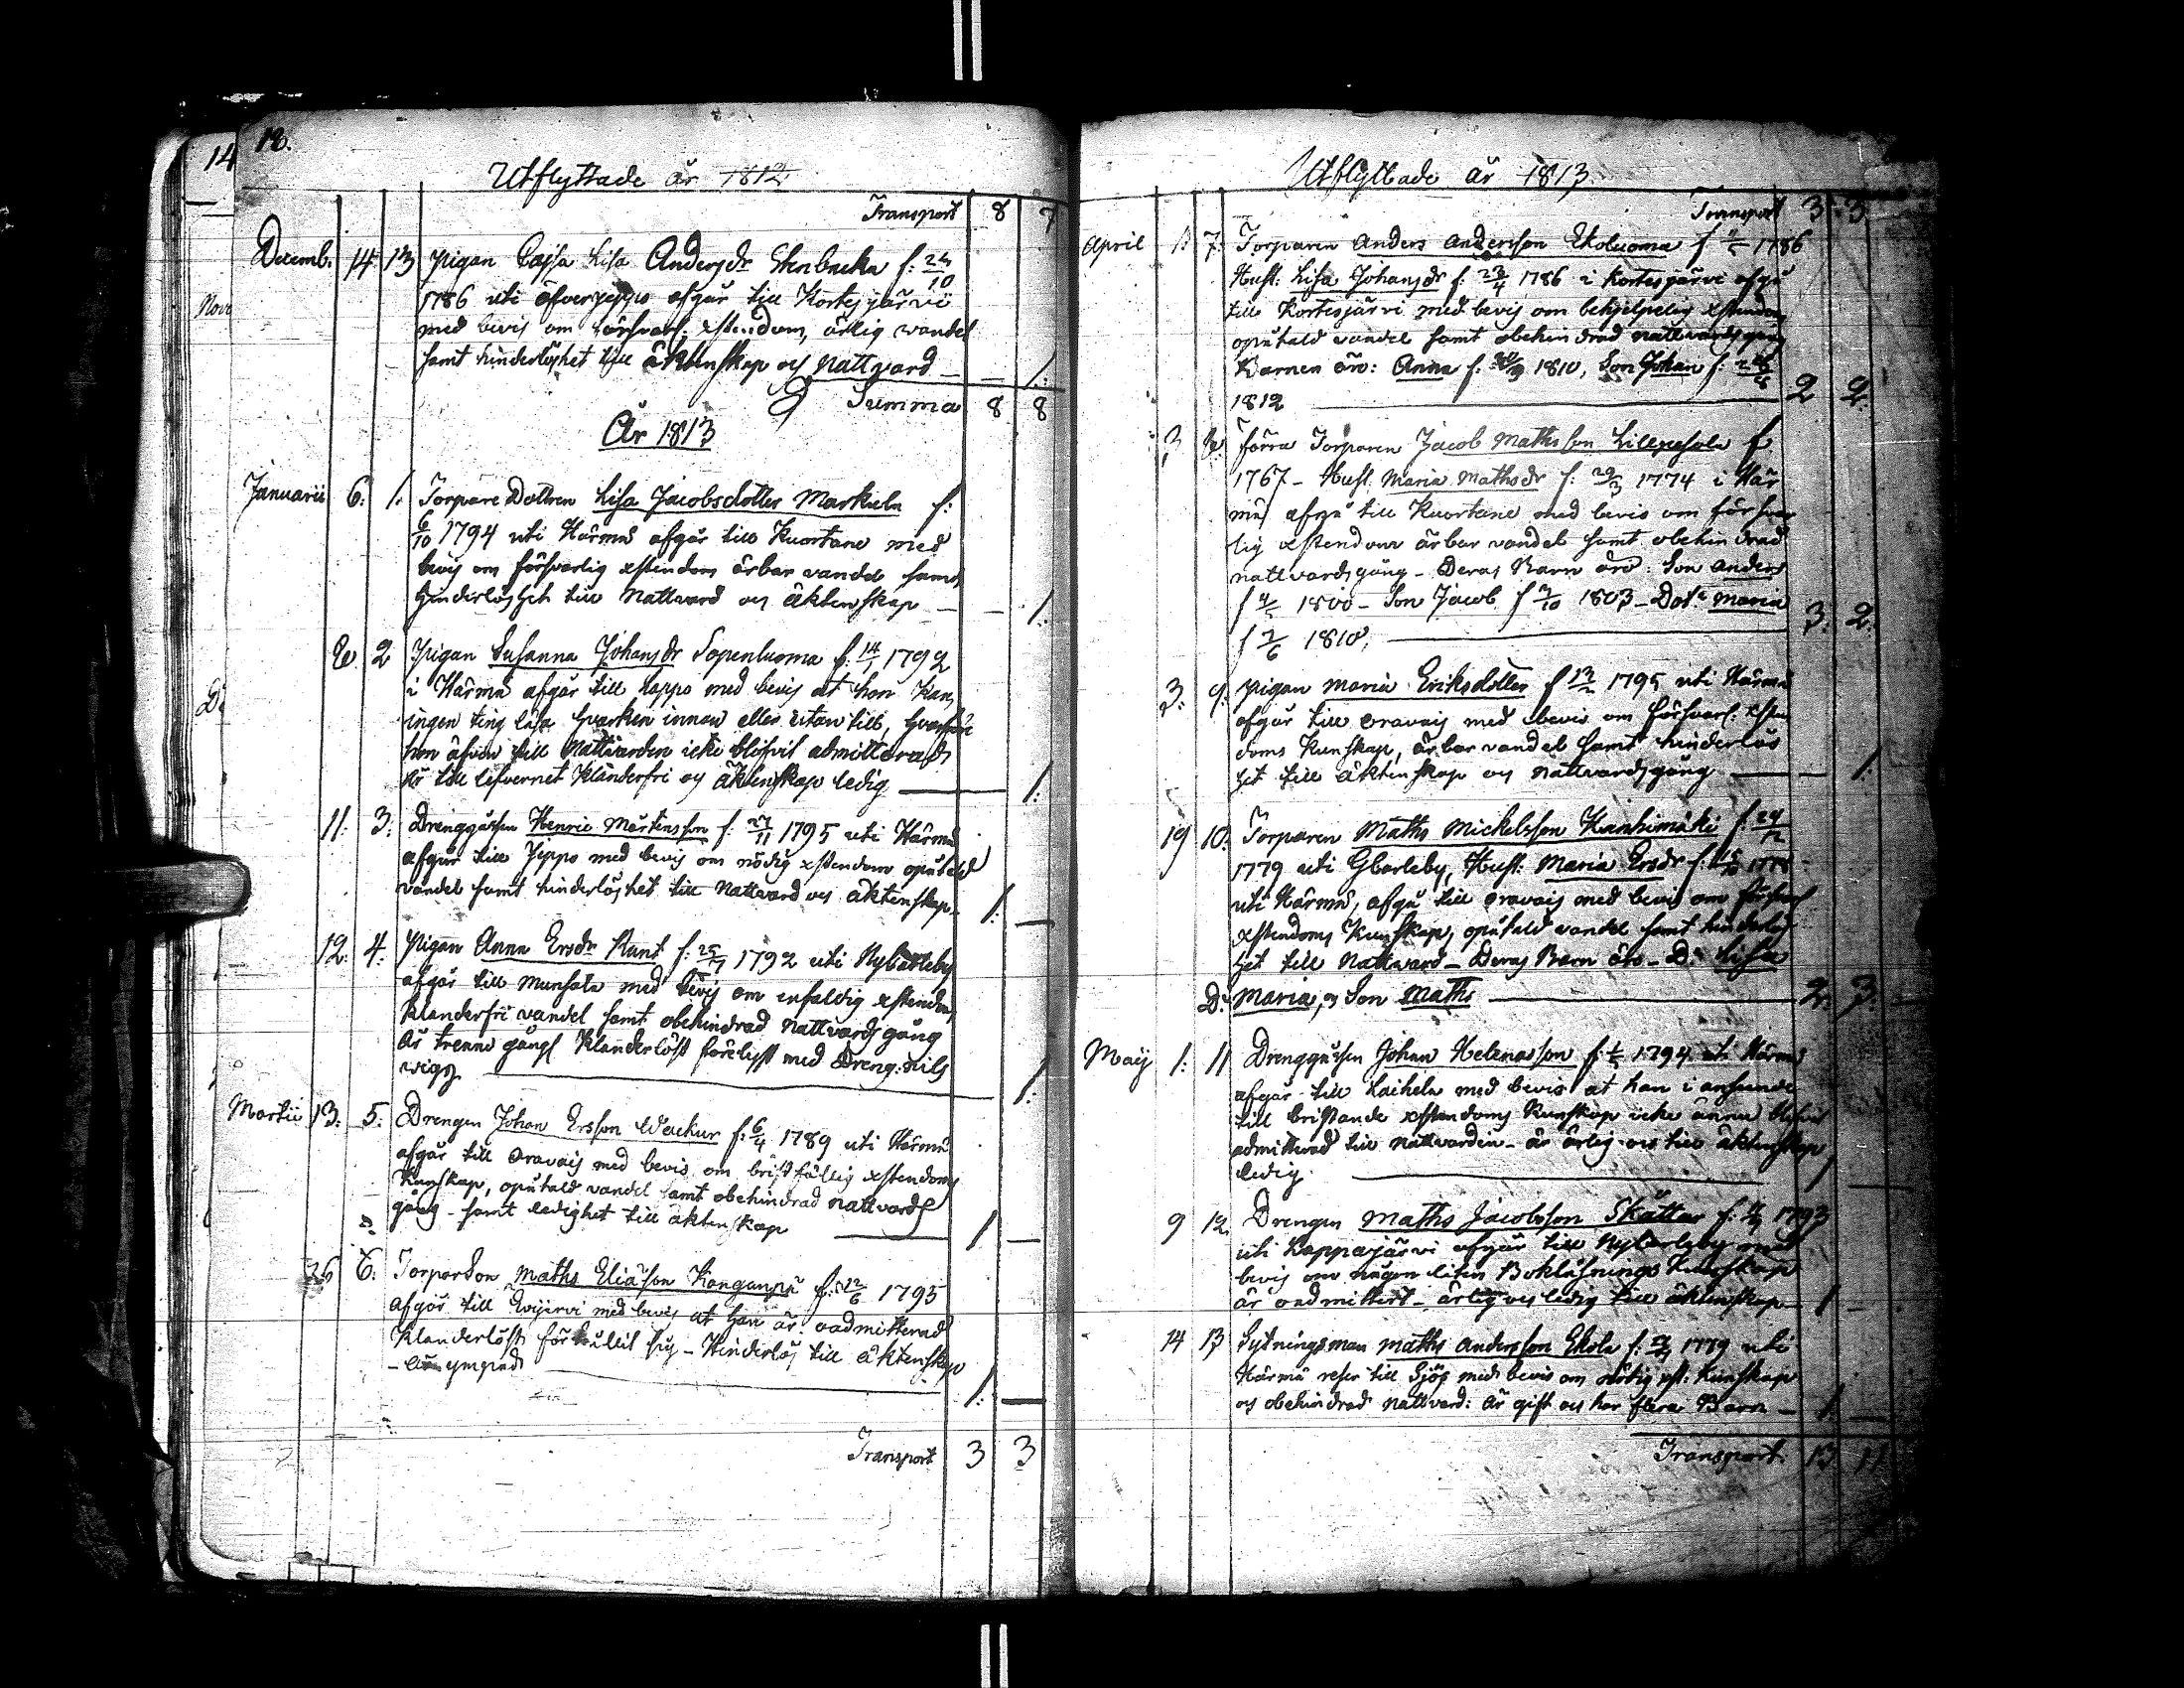 14 18.
Utflyttade år 1812.
Transport 8 7
Decemb. 14 13 Pigan Cajsa Lisa Andersdr Stenbacka f: 24/10
1786 uti öfverjeppo afgår till Kortesjärvi
med bevis om försvarl: xstendom, ärlig wandel
samt hinderlöshet till äktenskap och Nattvard — — 1.
Summa 8 8
År 1813
Januarii 6: 1. Torpare Dottren Lisa Jacobsdotter Markula f:
6/10 1794 uti Härmä afgår till Kuortane med
bevis om försvarlig xstendom ärbar vandel samt
hinderlöshet till Nattvard och äktenskap — — 1.
2 Pigan Susanna Johansdr Sopenluoma f: 14/1 1792
i Härmä afgår till Lappo med bevis at hon kan
ingen ting läsa hvarken innan eller utan till, hvarföre
hon äfven till Nattvarden icke blifvit admitterad,
är till lefvernet Klanderfri och äktenskap ledig — 1.
11: 3: Drenggåssen Henric Mårtensson f: 27/11 1795 uti Härmä
afgår till Jeppo med bevis om nödig xstendom opåtald
vandel samt hinderlöshet till Nattvard och äktenskap. 1. —
12: 4: Pigan Anna Ersdr Kunt f: 25/7 1792 uti Nycarleby
afgår till Munsala med bevis om enfaldig xstendom,
Klanderfri vandel samt obehindrad Nattvards gång
Är trenne gång Klanderlöst förelyst med Dreng: Nils
1.
Martii 13: 5: Drengen Johan Ersson Wackur f: 6/4 1789 uti Härmä
afgår till Oravais med bevis om bristfällig xstendoms
Kunskap, opåtald vandel samt obehindrad Nattvards
gång – samt ledighet till äktenskap — 1 —
26 6: Torpar Son Maths Eliasson Kangaspä f: 12/6 1795
afgår till Evijervi med bevis at han är oadmitterad
Klanderlöst förhållit sig – Hinderlös till äktenskap
1. —
Transport 3 3
Utflyttade år 1813
Transport 3 3
April 1: 7: Torparen Anders Andersson Ekoluoma f 1786
Hust: Lisa Johansdr f: 23/4 1786 i Kortesjärvi afgå
till Kortesjärvi med bevis om behjelpelig xstendom
opåtald vandel samt obehindrad nattvards gång
Barnen äro: Anna f: 1810, Son Johan f:
1812 — 2 2.
3 förra Torparen Jacob Mathsson Lillpesola f.
1767 – Hust. Maria Mathsdr f: 29/3 1774 i Här
mä afgå till Kuortane med bevis om försvar
lig xstendom ärbar vandel samt obehindrad
nattvardsgång – Deras Barn äro: Son Anders
f 1800 – Son Jacob f 1803 – Dotr Maria
f 7/6 1810. — 3. 2.
3: 9: Pigan Maria Eriksdotter f 1795 uti Härmä
afgår till Oravais med bevis om försvarl: xsten
doms Kunskap, ärbar vandel samt hinderlös
het till äktenskap och Nattvardsgång — — 1.
19 10: Torparen Maths Mickelsson Kankimäki f: 24/12
1779 uti Gbarleby, Hust: Maria Ersdr f:
uti Härmä, afgå till Oravais med bevis om försvarl
xstendoms Kunskap, opåtald vandel samt hinderlös
het till Nattvard – Deras Barn äro – Dr Lisa
Dr Maria, och Son Maths — 2. 3.
Maij 1: 11 Drenggåssen Johan Helenasson f: 1794 uti Härmä
afgår till Laihela med bevis at han i anseende
till bristande xstendoms Kunskap icke ännu blifvit
admitterad till Nattvarden – är ärlig och till äktenskap
ledig. — 1 —
9 12. Drengen Maths Jacobsson Skåttar f: 1793
uti Lappajärvi afgår till Nycarleby med
bevis om någon liten Bokläsnings Kunskap
är oadmittert – ärlig och ledig till äktenskap — 1 —
14 13 Sytningsman Maths Andersson Ekola f: 1779 uti
Härmä reser till Sjös med bevis om nödig xst: Kunskap
och obehindrad Nattvard: Är gift och har flera Barn — 1. —
Transport 13 11